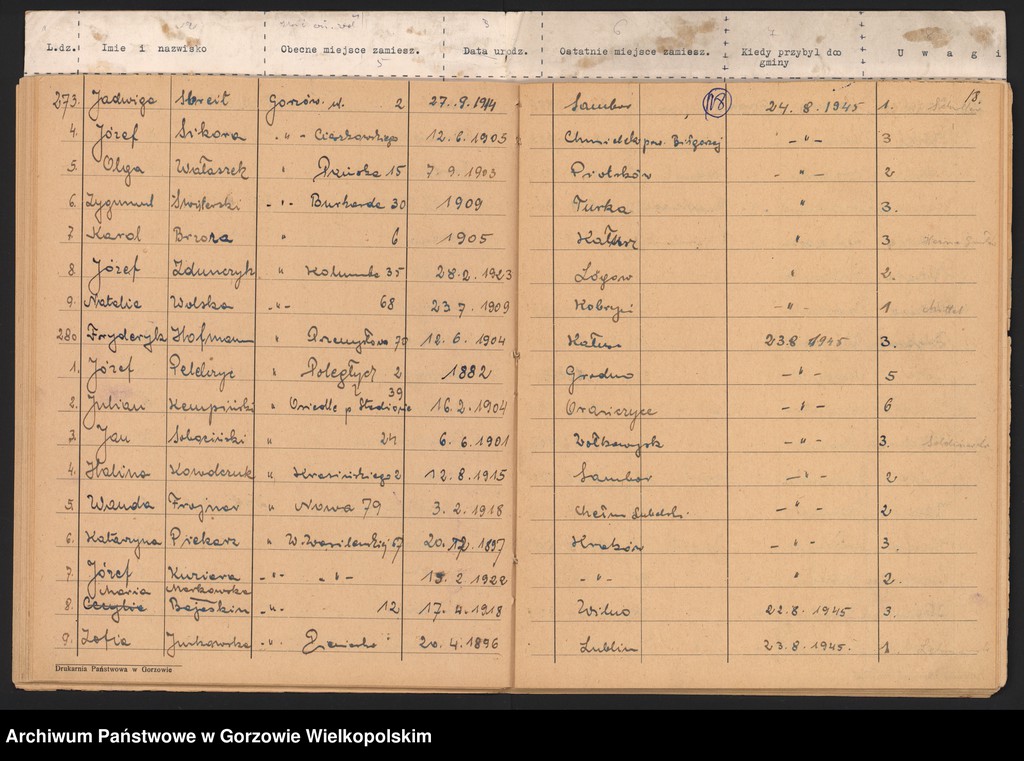 L.dz. Imie i nazwisko Obecne miejsce zamiesz. Data urodz. Ostatnie miejsce zamiesz. Kiedy przybył do gminy U w a g i
13.
273. Jadwiga Streit Gorzów. ul. 2 27. 9. 1914 Sambor 118 24. 8. 1945 1.
4. Józef Sikora " Cieszkowskiego 12. 6. 1905 Chmielek pow. Biłgoraj - " - 3
5. Olga Wałaszek " 15 7. 9. 1903 Piotrków - " - 2
6. Zygmunt Świterski - " - Burharda 30 1909 Turka " 3.
7 Karol Brzoza " 6 1905 Kałusz " 3
8 Józef Zdunczyk " Kolumba 35 28. 2. 1923 " 2.
9. Natalia Wolska - " - 68 23 7. 1909 Kobryń - " - 1
280 Fryderyk Hofmann " Przemysłowa 79 12. 6. 1904 Kałusz 23.8 1945 3.
1. Józef Pelczyc " Poległych 2 1882 Grodno - " - 5
2. Julian Kempiński " Osiedle p. Stadionie 39 16. 2. 1904 Orańczyce - " - 6
3. Jan Sobasiński " 24 6. 6. 1901 Wołkowysk - " - 3.
4. Halina Kowalczuk " Krasińskiego 2 12. 8. 1915 Sambor - " - 2
5. Wanda Frajnar " Nowa 79 3. 2. 1918 Chełm Lubelski. - " - 2
6. Katarzyna Piekarz " W. Wasilewskiej 67 20. 12. 1897 Kraków - " - 3.
7. Józef Kuziera - " - - " - 13. 2 1922 - " - " 2.
Maria Markowska
8. Bajeskin - " - 12 17. 4. 1918 Wilno 22. 8. 1945 3.
9. Zofia Juchowska - " - 20. 4. 1896 Lublin 23. 8. 1945. 1.
Drukarnia Państwowa w Gorzowie
Archiwum Państwowe w Gorzowie Wielkopolskim